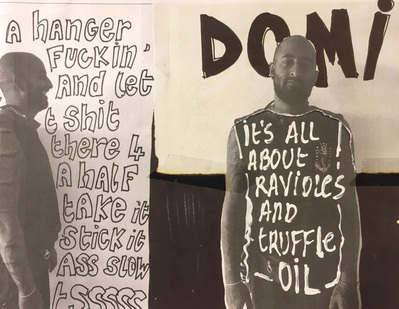 A HANGER
FUCKIN'
AND LET
t SHIT
THERE 4
A HALF
TAKE it
STICK it
ASS SLOW
tSSSSS
DOMi
it'S ALL
ABOUT
RAVIOLES
AND
tRUFFLE
OiL